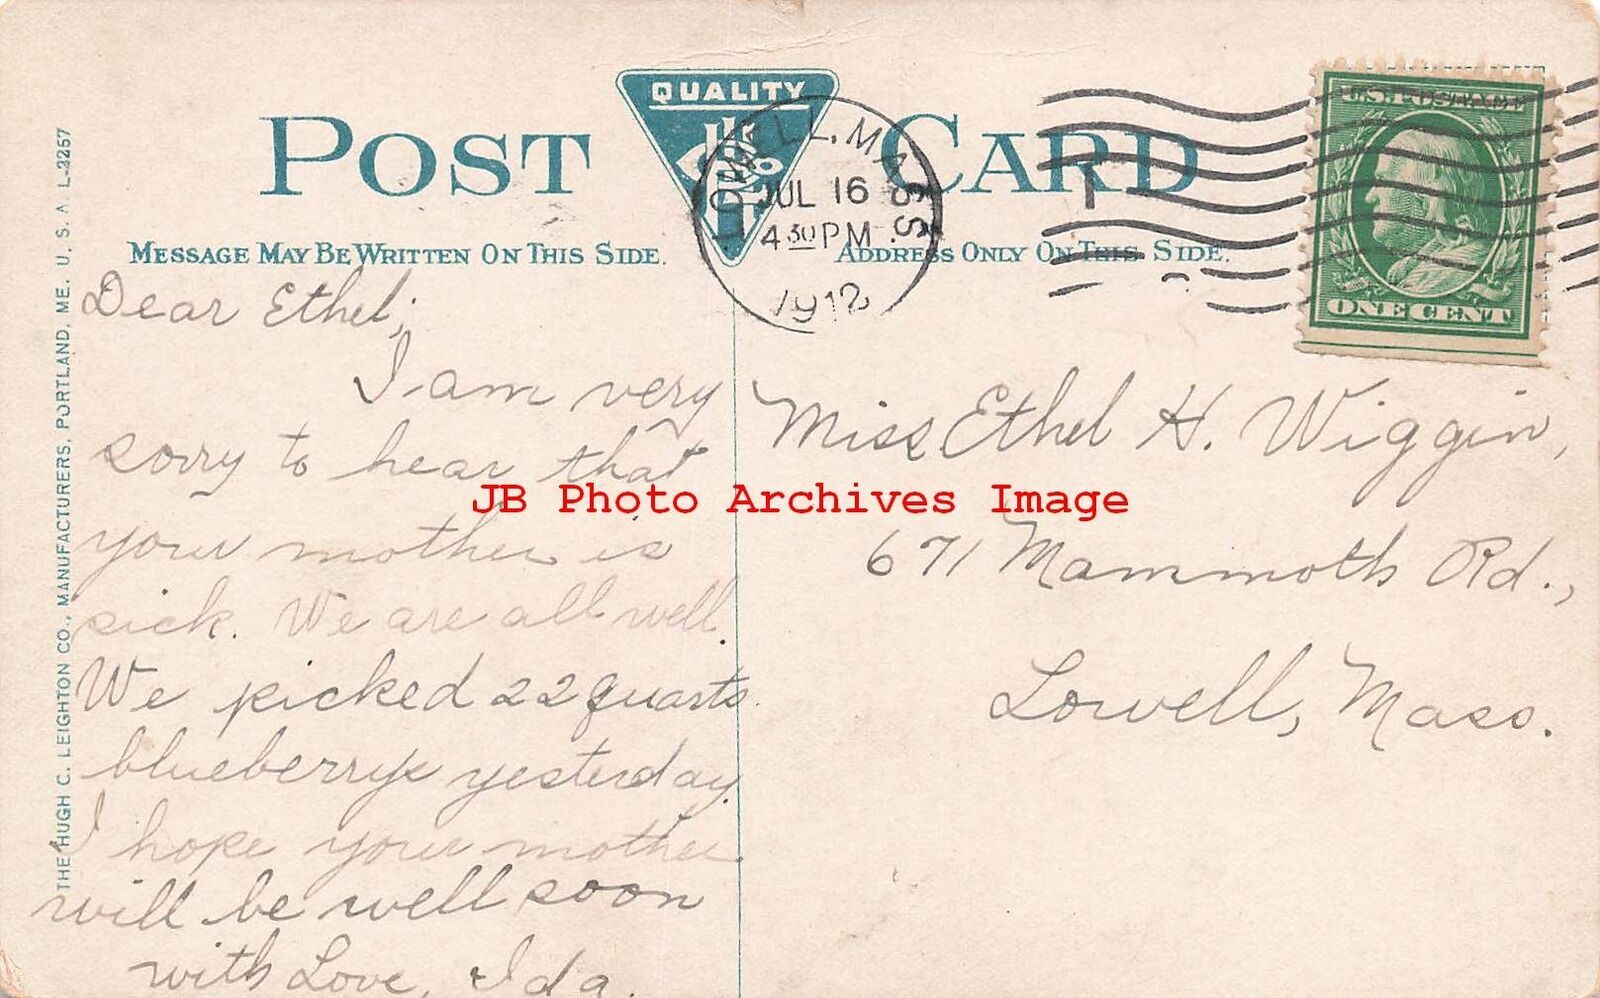 QUALITY
POST CARD
LOWELL, MASS.
JUL 16
4 30 PM
1912
1
U.S. POSTAGE
ONE CENT
MESSAGE MAY BE WRITTEN ON THIS SIDE.
ADDRESS ONLY ON THIS SIDE.
THE HUGH C. LEIGHTON CO., MANUFACTURERS, PORTLAND, ME. U. S. A L-2257
Dear Ethel;
I am very
sorry to hear that
your mother is
sick. We are all well.
We picked 22 quarts
blueberrys yesterday.
I hope your mother
will be well soon
with Love, Ida.
Miss Ethel H. Wiggin,
671 Mammoth Rd.,
Lowell, Mass.
JB Photo Archives Image